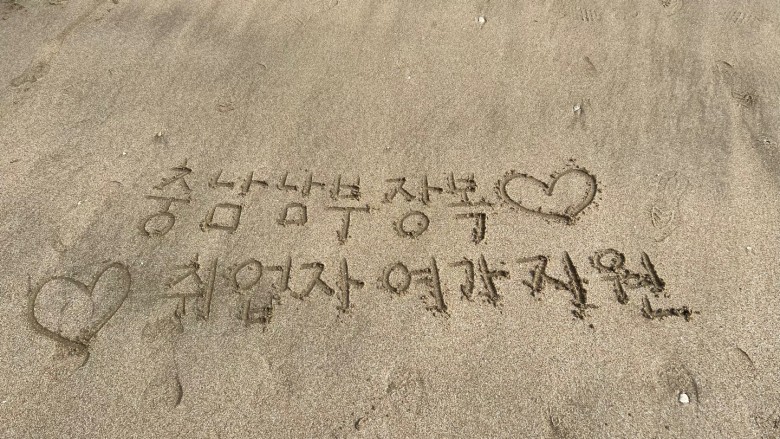 충남남부장복♡
♡취업자 여가지원